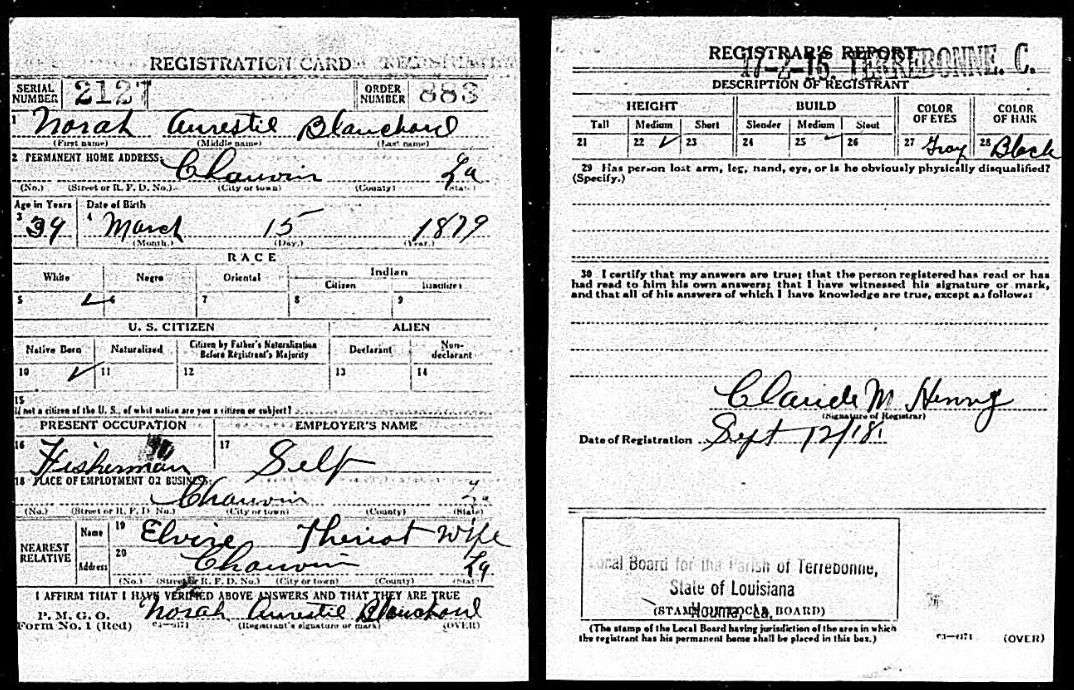 REGISTRATION CARD
SERIAL NUMBER 2127 ORDER NUMBER 883
1 Norah Aurestil Blanchard
(First name) (Middle name) (Last name)
2 PERMANENT HOME ADDRESS:
Chauvin La
(No.) (Street or R. F. D. No.) (City or town) (County) (State)
Age in Years Date of Birth
3 39 4 March 15 1879
(Month.) (Day.) (Year.)
RACE
White Negro Oriental Indian
Citizen Noncitizen
5 ✓ 6 7 8 9
U. S. CITIZEN ALIEN
Native Born Naturalized Citizen by Father's Naturalization Before Registrant's Majority Declarant Non-declarant
10 ✓ 11 12 13 14
15
If not a citizen of the U. S., of what nation are you a citizen or subject?
PRESENT OCCUPATION EMPLOYER'S NAME
16 Fisherman 17 Self
18 PLACE OF EMPLOYMENT OR BUSINESS:
Chauvin La
(No.) (Street or R. F. D. No.) (City or town) (County) (State)
NEAREST RELATIVE Name 19 Elvire Theriot Wife
Address 20 Chauvin La
(No.) (Street or R. F. D. No.) (City or town) (County) (State)
I AFFIRM THAT I HAVE VERIFIED ABOVE ANSWERS AND THAT THEY ARE TRUE
P. M. G. O.
Form No. 1 (Red) Norah Aurestil Blanchard
(Registrant's signature or mark) (OVER)
REGISTRAR'S REPORT
17-2-16. TERREBONNE. C.
DESCRIPTION OF REGISTRANT
HEIGHT BUILD COLOR OF EYES COLOR OF HAIR
Tall Medium Short Slender Medium Stout
21 22 ✓ 23 24 25 ✓ 26 27 Gray 28 Black
29 Has person lost arm, leg, hand, eye, or is he obviously physically disqualified?
(Specify.)
30 I certify that my answers are true; that the person registered has read or has
had read to him his own answers; that I have witnessed his signature or mark,
and that all of his answers of which I have knowledge are true, except as follows:
Claude M
(Signature of Registrar)
Date of Registration Sept 12/18
Local Board for the Parish of Terrebonne,
State of Louisiana
Houma, La.
(STAMP OF LOCAL BOARD)
(The stamp of the Local Board having jurisdiction of the area in which
the registrant has his permanent home shall be placed in this box.)
(OVER)